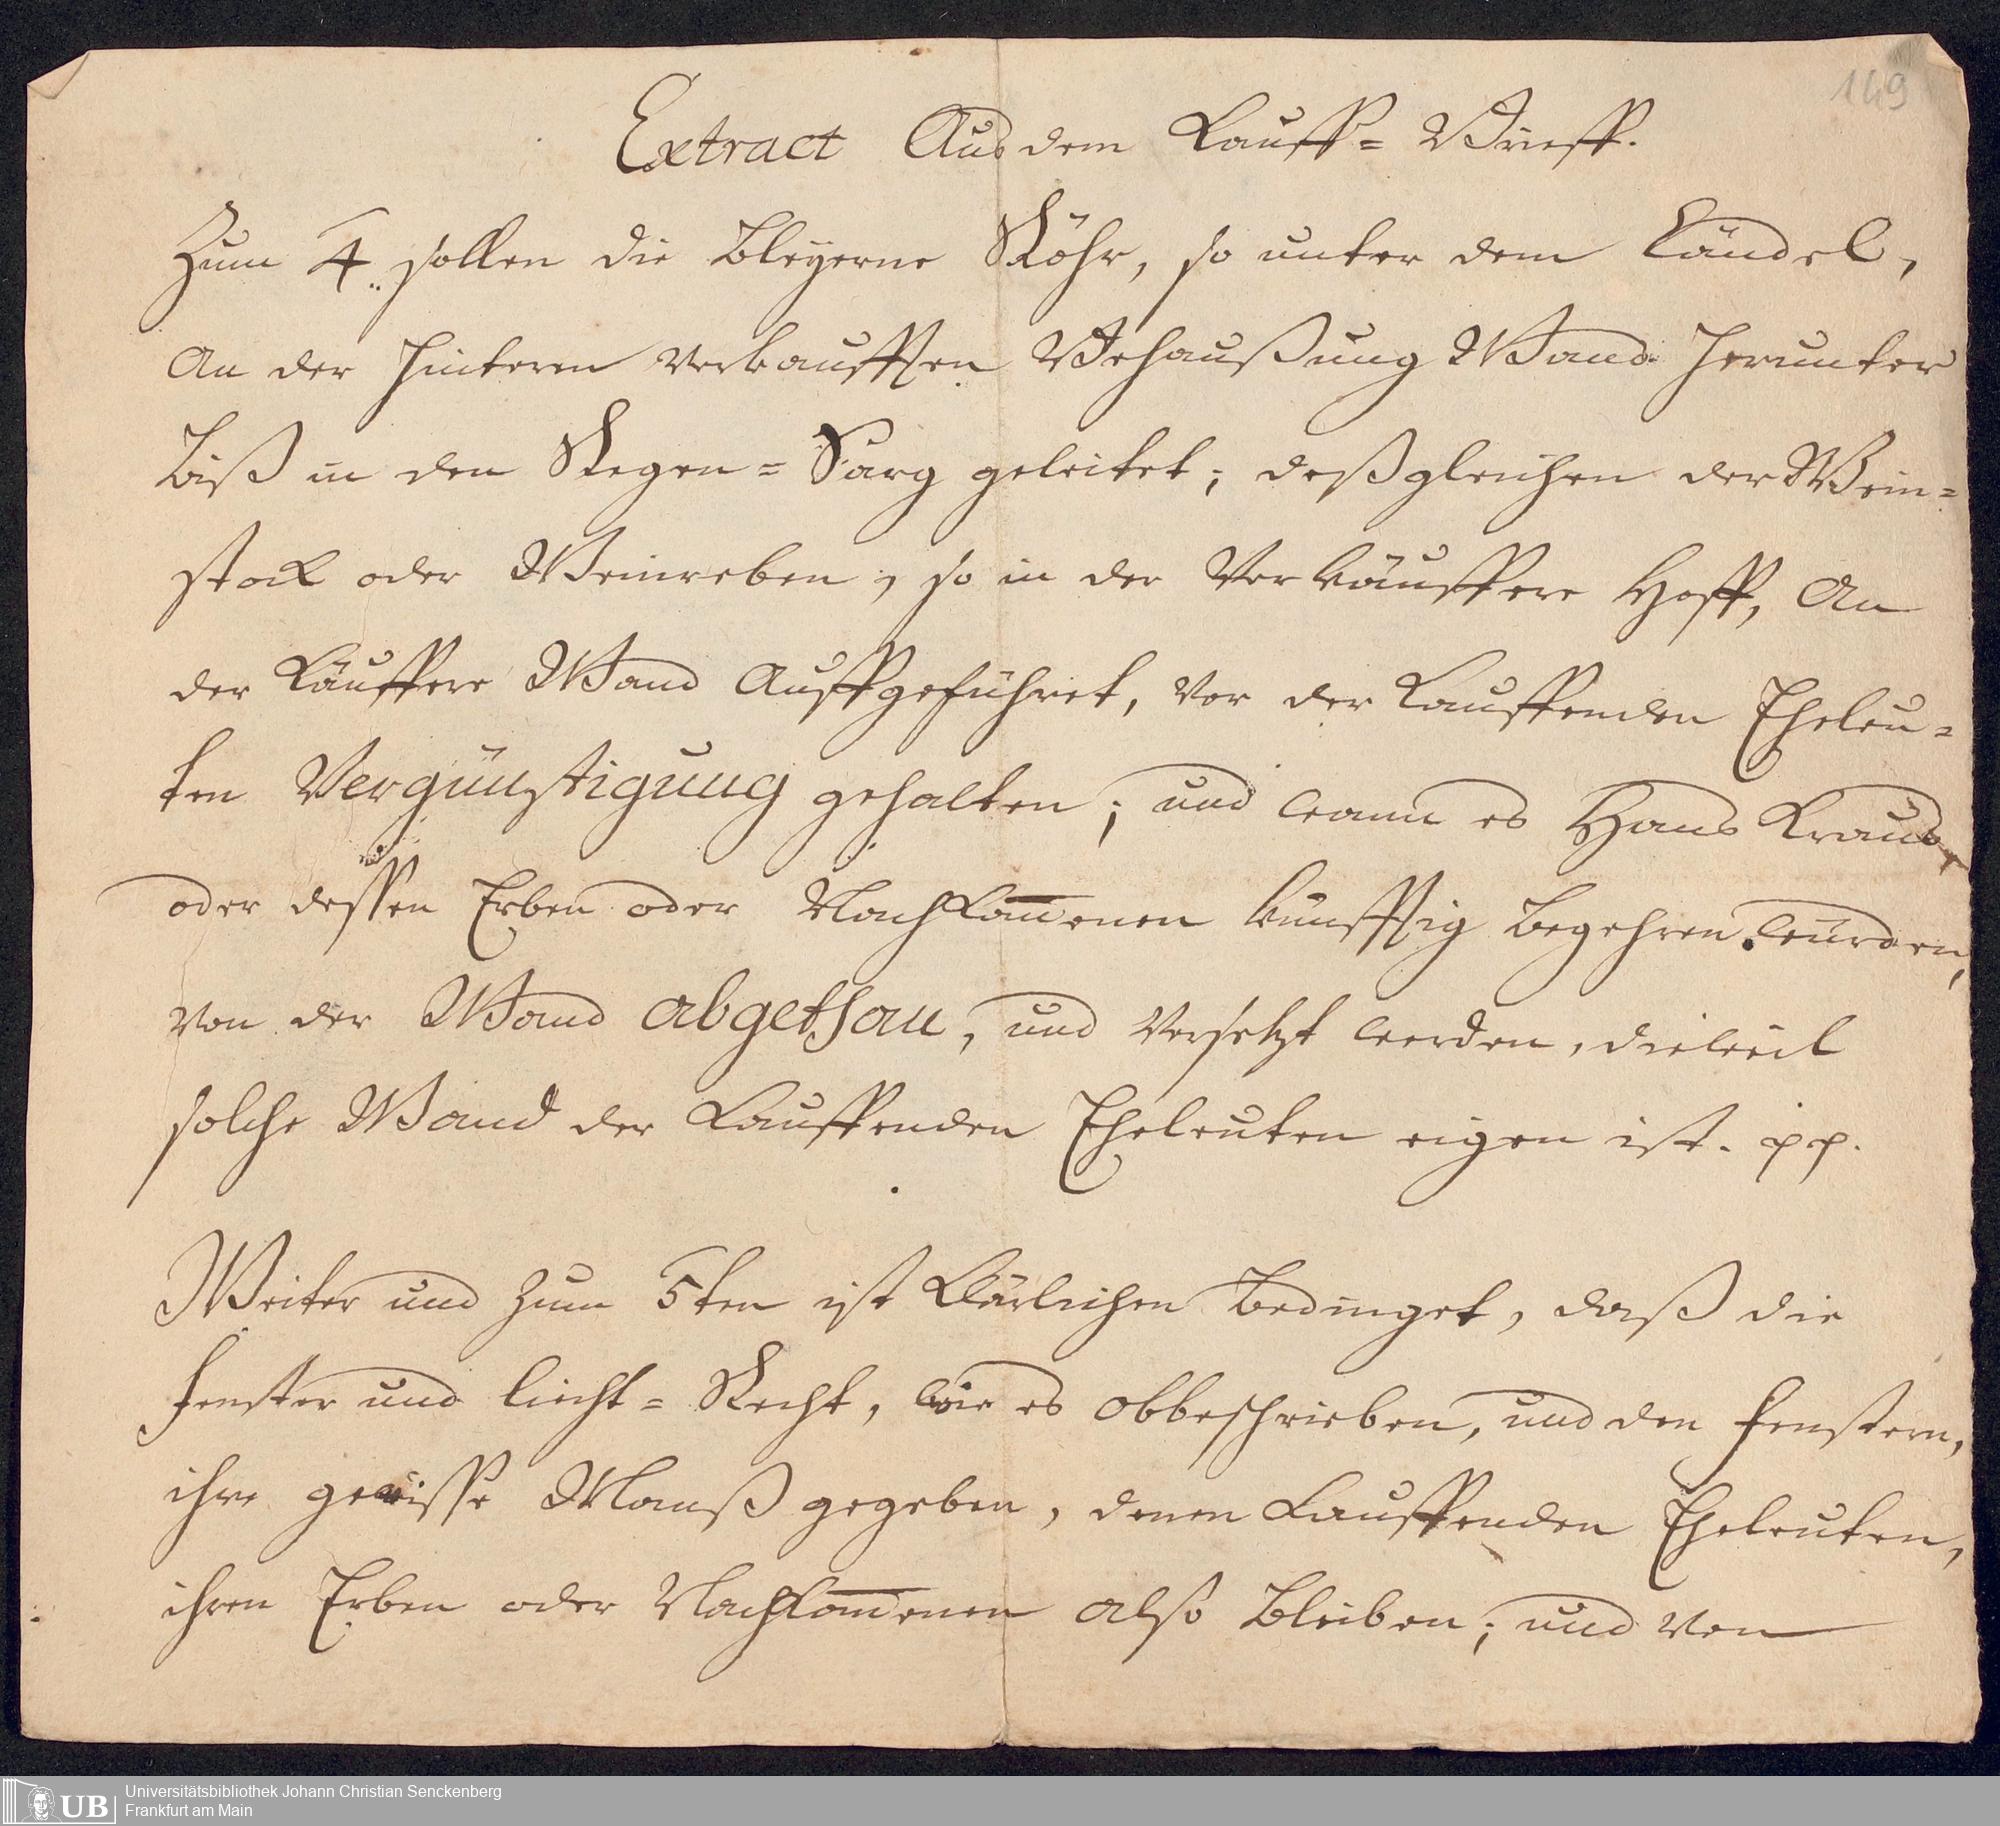 149
Extract Aus dem Kauff= Brieff.
Zum 4. sollen die bleyerne Röhr, so unter dem Cändel,
An der hinteren verkaufften Behaußung Wand herunter
biß in den Regen= Sarg geleitet; deßgleichen der Wein=
stock oder Weinreben, so in der Verkäuffere Hoff, An
der Käuffere Wand Auffgeführet, vor der Kauffenden Eheleu=
ten Vergünstigung gehalten; und wann es Hans Kraus,
oder dessen Erben oder Nachkom̅enen künfftig begehren würden,
von der Wand abgethan, und versetzt werden, dieweil
solche Wand der Kauffenden Eheleuten eigen ist. pp.
Weiter und zum 5ten ist klärlichen bedinget, daß die
fenster und liecht= Recht, wie es obbeschrieben, und den fenstern,
ihre gewisse Maaß gegeben, denen Kauffenden Eheleuten,
ihren Erben oder Nachkom̅enen also bleiben; und von
UB
Universitätsbibliothek Johann Christian Senckenberg
Frankfurt am Main